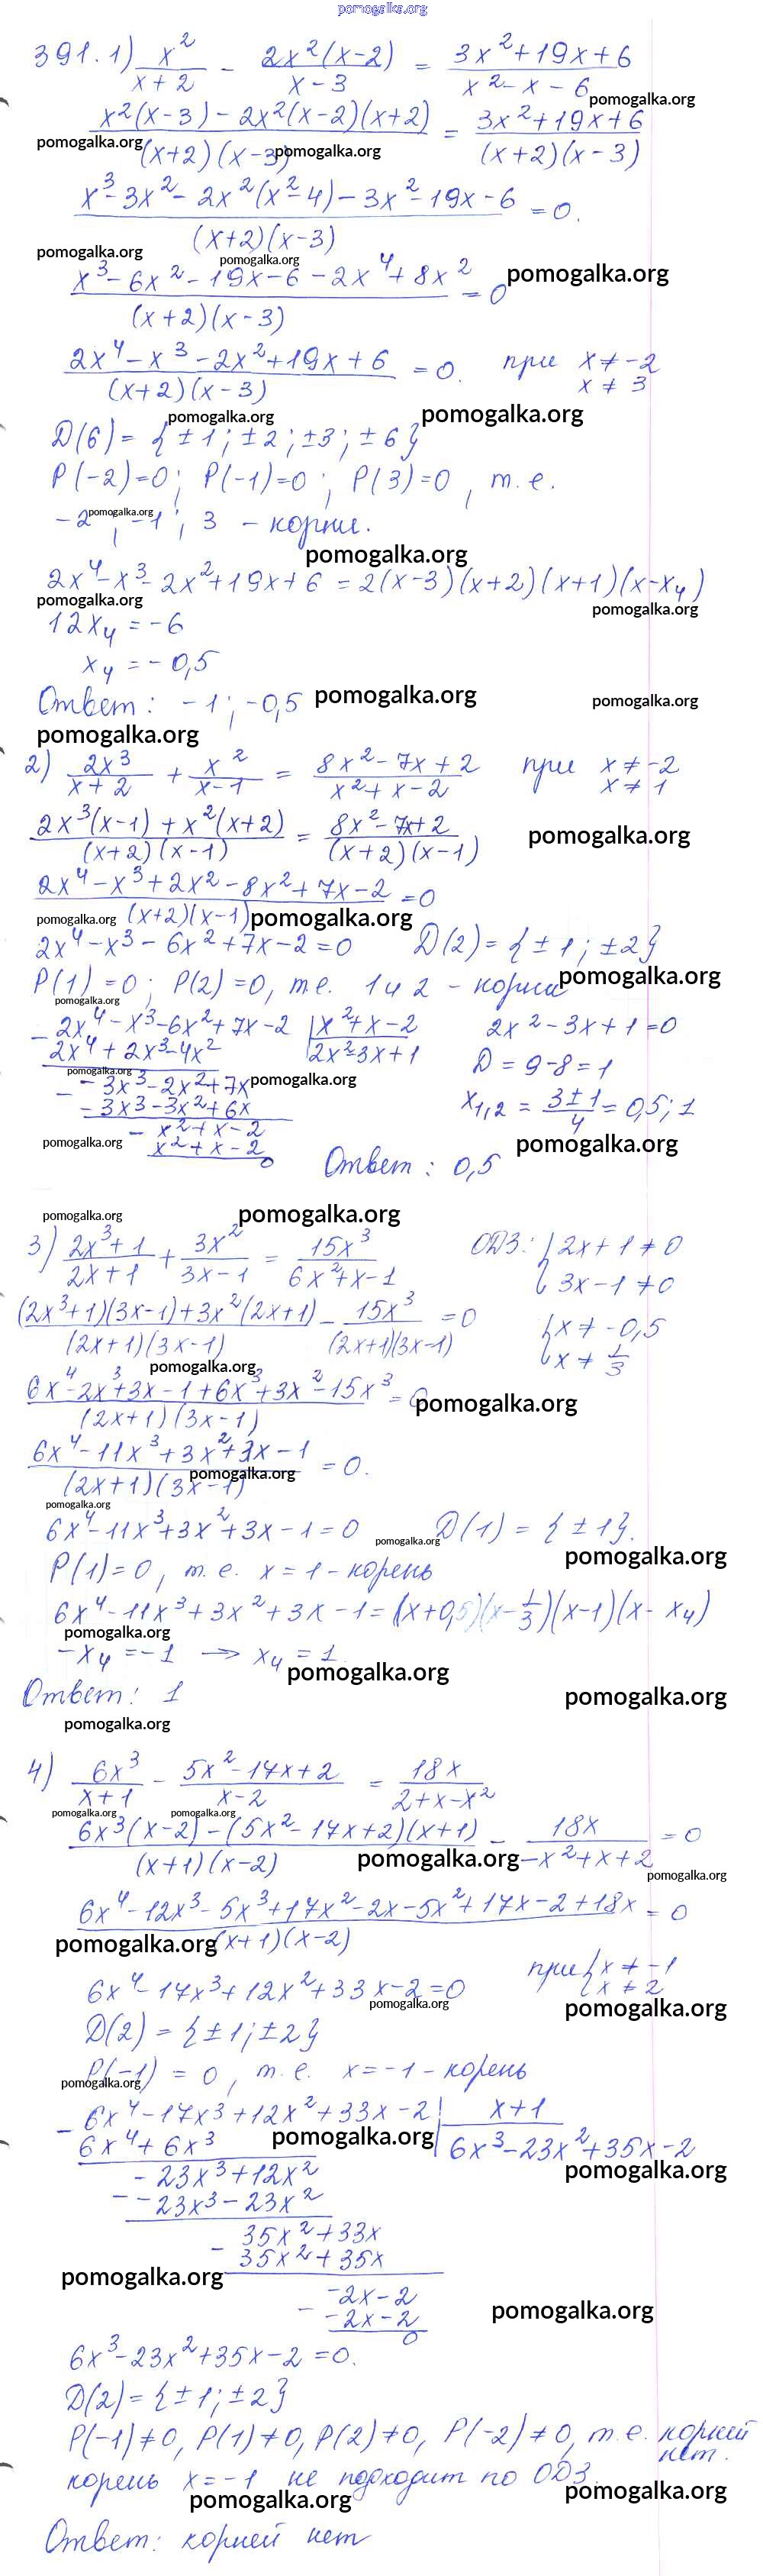 pomogalka.org
391. 1) x²/(x+2) - 2x²(x-2)/(x-3) = (3x²+19x+6)/(x²-x-6)
pomogalka.org
(x²(x-3) - 2x²(x-2)(x+2))/((x+2)(x-3)) = (3x²+19x+6)/((x+2)(x-3))
pomogalka.org pomogalka.org
(x³-3x²-2x²(x²-4)-3x²-19x-6)/((x+2)(x-3)) = 0.
pomogalka.org pomogalka.org pomogalka.org
(x³-6x²-19x-6-2x⁴+8x²)/((x+2)(x-3)) = 0
(2x⁴-x³-2x²+19x+6)/((x+2)(x-3)) = 0. при x≠-2 x≠3
pomogalka.org pomogalka.org
D(6) = {±1; ±2; ±3; ±6}
P(-2)=0; P(-1)=0; P(3)=0, т.е.
pomogalka.org
-2; -1; 3 - корни.
pomogalka.org
2x⁴-x³-2x²+19x+6 = 2(x-3)(x+2)(x+1)(x-x₄)
pomogalka.org pomogalka.org
12x₄ = -6
x₄ = -0,5
Ответ: -1; -0,5 pomogalka.org pomogalka.org
pomogalka.org
2) 2x³/(x+2) + x²/(x-1) = (8x²-7x+2)/(x²+x-2) при x≠-2 x≠1
(2x³(x-1)+x²(x+2))/((x+2)(x-1)) = (8x²-7x+2)/((x+2)(x-1)) pomogalka.org
(2x⁴-x³+2x²-8x²+7x-2)/((x+2)(x-1)) = 0
pomogalka.org pomogalka.org
2x⁴-x³-6x²+7x-2=0 D(2)={±1; ±2}
P(1)=0; P(2)=0, т.е. 1 и 2 - корни pomogalka.org
pomogalka.org
- 2x⁴-x³-6x²+7x-2 | x²+x-2 2x²-3x+1=0
2x⁴+2x³-4x² | 2x²-3x+1 D=9-8=1
pomogalka.org pomogalka.org
- -3x³-2x²+7x
-3x³-3x²+6x x₁,₂ = (3±1)/4 = 0,5; 1
- x²+x-2
pomogalka.org pomogalka.org
x²+x-2
0 Ответ: 0,5
pomogalka.org pomogalka.org
3) (2x³+1)/(2x+1) + 3x²/(3x-1) = 15x³/(6x²+x-1) ОДЗ: {2x+1≠0 3x-1≠0
((2x³+1)(3x-1)+3x²(2x+1))/((2x+1)(3x-1)) - 15x³/((2x+1)(3x-1)) = 0 {x≠-0,5 x≠1/3
pomogalka.org
(6x⁴-2x³+3x-1+6x³+3x²-15x³)/((2x+1)(3x-1)) = 0
pomogalka.org
(6x⁴-11x³+3x²+3x-1)/((2x+1)(3x-1)) = 0.
pomogalka.org
pomogalka.org
6x⁴-11x³+3x²+3x-1=0 D(1)={±1}.
pomogalka.org
pomogalka.org
P(1)=0, т.е. x=1 - корень
6x⁴-11x³+3x²+3x-1=(x+0,5)(x-1/3)(x-1)(x-x₄)
pomogalka.org
-x₄=-1 → x₄=1.
pomogalka.org
Ответ: 1 pomogalka.org
pomogalka.org
4) 6x³/(x+1) - (5x²-17x+2)/(x-2) = 18x/(2+x-x²)
pomogalka.org pomogalka.org
(6x³(x-2)-(5x²-17x+2)(x+1))/((x+1)(x-2)) - 18x/(-x²+x+2) = 0
pomogalka.org
pomogalka.org
(6x⁴-12x³-5x³+17x²-2x-5x²+17x-2+18x)/((x+1)(x-2)) = 0
pomogalka.org
6x⁴-17x³+12x²+33x-2=0 при {x≠-1 x≠2
pomogalka.org pomogalka.org
D(2)={±1; ±2}
P(-1)=0, т.е. x=-1 - корень
pomogalka.org
- 6x⁴-17x³+12x²+33x-2 | x+1
6x⁴+6x³ | 6x³-23x²+35x-2
pomogalka.org pomogalka.org
-23x³+12x²
- -23x³-23x²
- 35x²+33x
35x²+35x
pomogalka.org
- -2x-2
-2x-2
pomogalka.org
0
6x³-23x²+35x-2=0.
D(2)={±1; ±2}
P(-1)≠0, P(1)≠0, P(2)≠0, P(-2)≠0, т.е. корней
нет.
корень x=-1 не подходит по ОДЗ.
pomogalka.org pomogalka.org
Ответ: корней нет